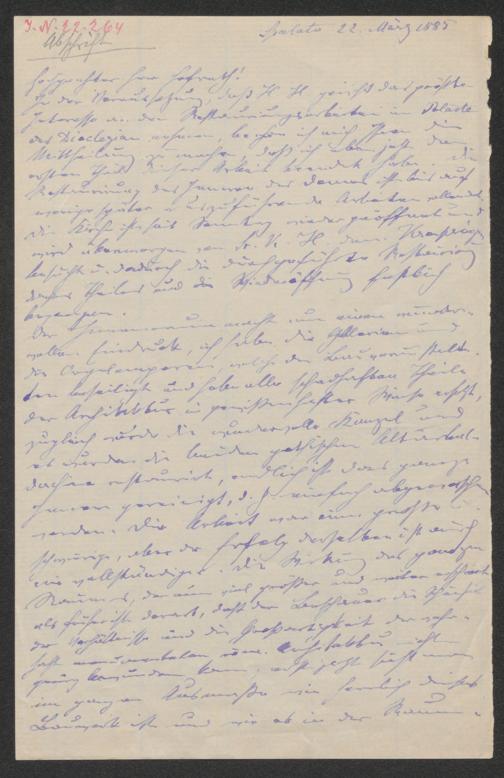 J.N. 22.264
Abschrift
Spalato 22. März 1885
Hochgeehrter Herr Hofrath!
In der Voraussetzung, daß H. H. gewiß das größte
Interesse an den Restaurirungsarbeiten im Palaste
des Diocletian nehmen, beehre ich mich Ihnen die
Mittheilung zu machen, daß ich eben jetzt den
ersten Theil dieser Arbeit beendet habe. Die
Restaurirung des Inneren des Domes ist bis auf
wenige später auszuführende Arbeiten vollendet,
die Kirche ist seit Sonntag wieder geöffnet und
wird übermorgen von Sr. K. H. dem Kronprinzen
besucht u. dadurch die durchgeführte Restaurirung
dieses Theiles und die Wiedereröffnung festlich
begangen.
Der Innenraum macht nun einen wunder-
vollen Eindruck, ich habe die Gallerien und
die Orgelempore, welche den Bau verunstalte-
ten beseitigt und habe alle schadhaften Theile
der Architektur in gewissenhafter Weise ersetzt,
zugleich wurde die wundervolle Kanzel und
es wurden die beiden gothischen Altarbal-
dachine restaurirt, endlich ist das ganze
Innere gereinigt, d. h. einfach abgewaschen
worden. Die Arbeit war eine große u.
schwierige, aber der Erfolg derselben ist auch
ein vollständiger. Die Wirkung des ganzen
Raumes, der nun viel größer und erscheint
als früher ist derart, daß der Beschauer die Schönheit
der Verhältnisse und die Großartigkeit der wahr-
haft monumentalen röm. Architektur nicht
genug bewundern kann, erst jetzt sieht man
im ganzen Ausmaße wie herrlich dieses
Bauwerk ist und wie es in der Raum-